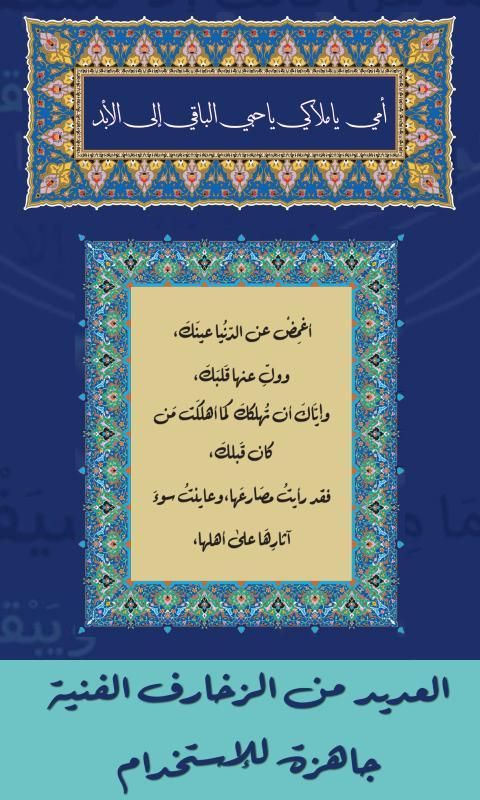 أمي ياملاكي ياحبي الباقي إلى الأبد
أغمِضْ عن الدّنُيا عينَكَ،
وولِّ عنها قَلبَكَ،
وإيّاكَ أن تُهلككَ كما أهلكَت مَن
كان قَبلكَ،
فقد رأيتُ مصَارعَها،وعاينْتُ سوءَ
آثارِهَا علىٰ أهلها،
العديد من الزخارف الفنية
جاهزة للإستخدام